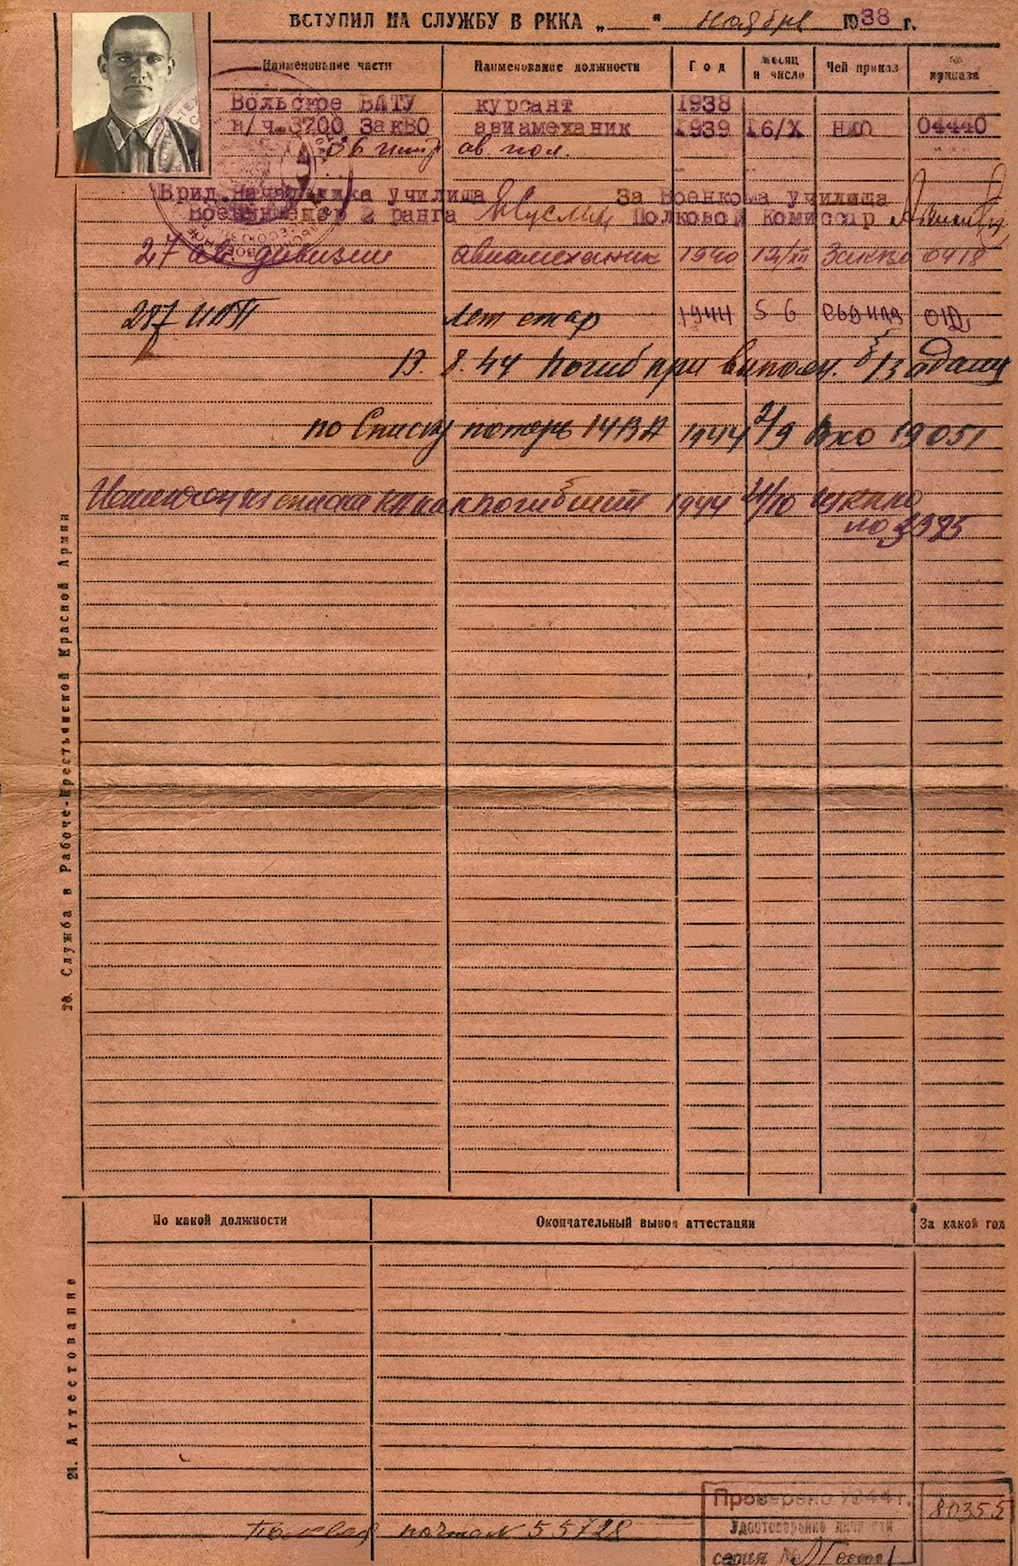 ВСТУПИЛ НА СЛУЖБУ В РККА „ " ноября 1938 г.
Наименование части Наименование должности Год месяц и число Чей приказ № приказа
Вольское ВАТУ курсант 1938
в/ч 3700 ЗакВО авиамеханик 1939 16/X НКО 04440
36 ав пол.
Врид Начальника училища За Военкома училища
Военинженер 2 ранга Полковой Комиссар
27 ав. дивизии авиамеханик 1940 13/III ЗакВО 0418
287 ИАП лет стар 1944 5 6
19. 8. 44 погиб при выполн. б/задания
по списку потерь 14 ВА 1944 2/9 Вхо 19051
из списка как погибший 1944
№ 3395
20. Служба в Рабоче-Крестьянской Красной Армии
По какой должности Окончательный вывод аттестации За какой год
21. Аттестование
Полевая почта № 55728
Проверено 1944 г.
Удостоверение личности
серия №
80355